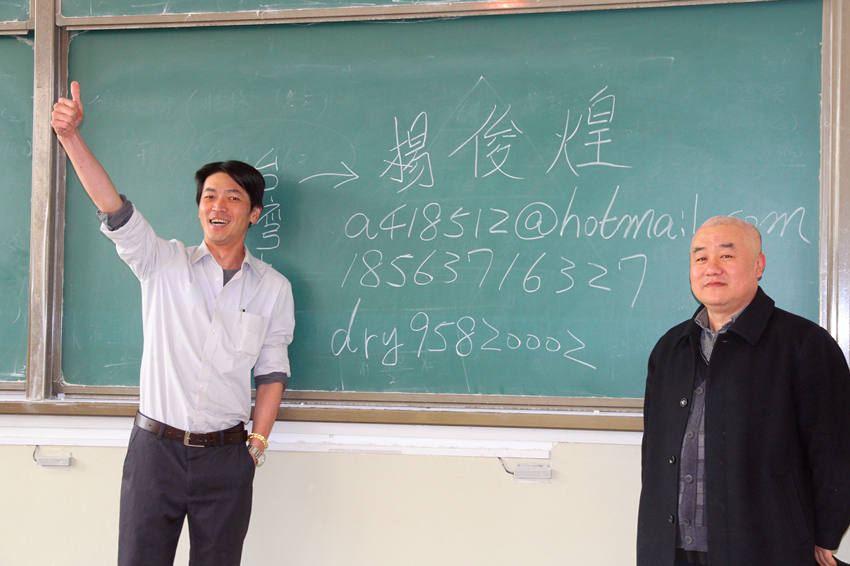 台湾 → 楊俊煌
a418512@hotmail.com
18563716327
dry95820002